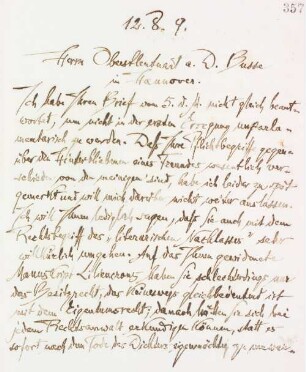 357
12. 8. 9.
Herrn Oberstleutnant a. D. Busse
in Hannover.
Ich habe Ihren Brief vom 5. d. M. nicht gleich beant-
wortet, um nicht in der ersten Erregung unparla-
mentarisch zu werden. Daß Ihre Pflichtbegriffe gegen-
über die Hinterbliebenen eines Freundes wesentlich ver-
schieden von den meinigen sind, habe ich leider zu spät
gemerkt und will mich darüber nicht weiter auslassen.
Ich will Ihnen lediglich sagen, daß Sie auch mit dem
Rechtsbegriff des literarischen Nachlasses sehr
willkürlich umgehen. Auf das Ihnen gewidmete
Manuskript Liliencrons haben Sie schlechterdings nur
das Besitzrecht, das keineswegs gleichbedeutend ist
mit dem Eigentumsrecht; danach hätten Sie sich bei
jedem Rechtsanwalt erkundigen können, statt es
sofort nach dem Tode des Dichters eigenmächtig zu